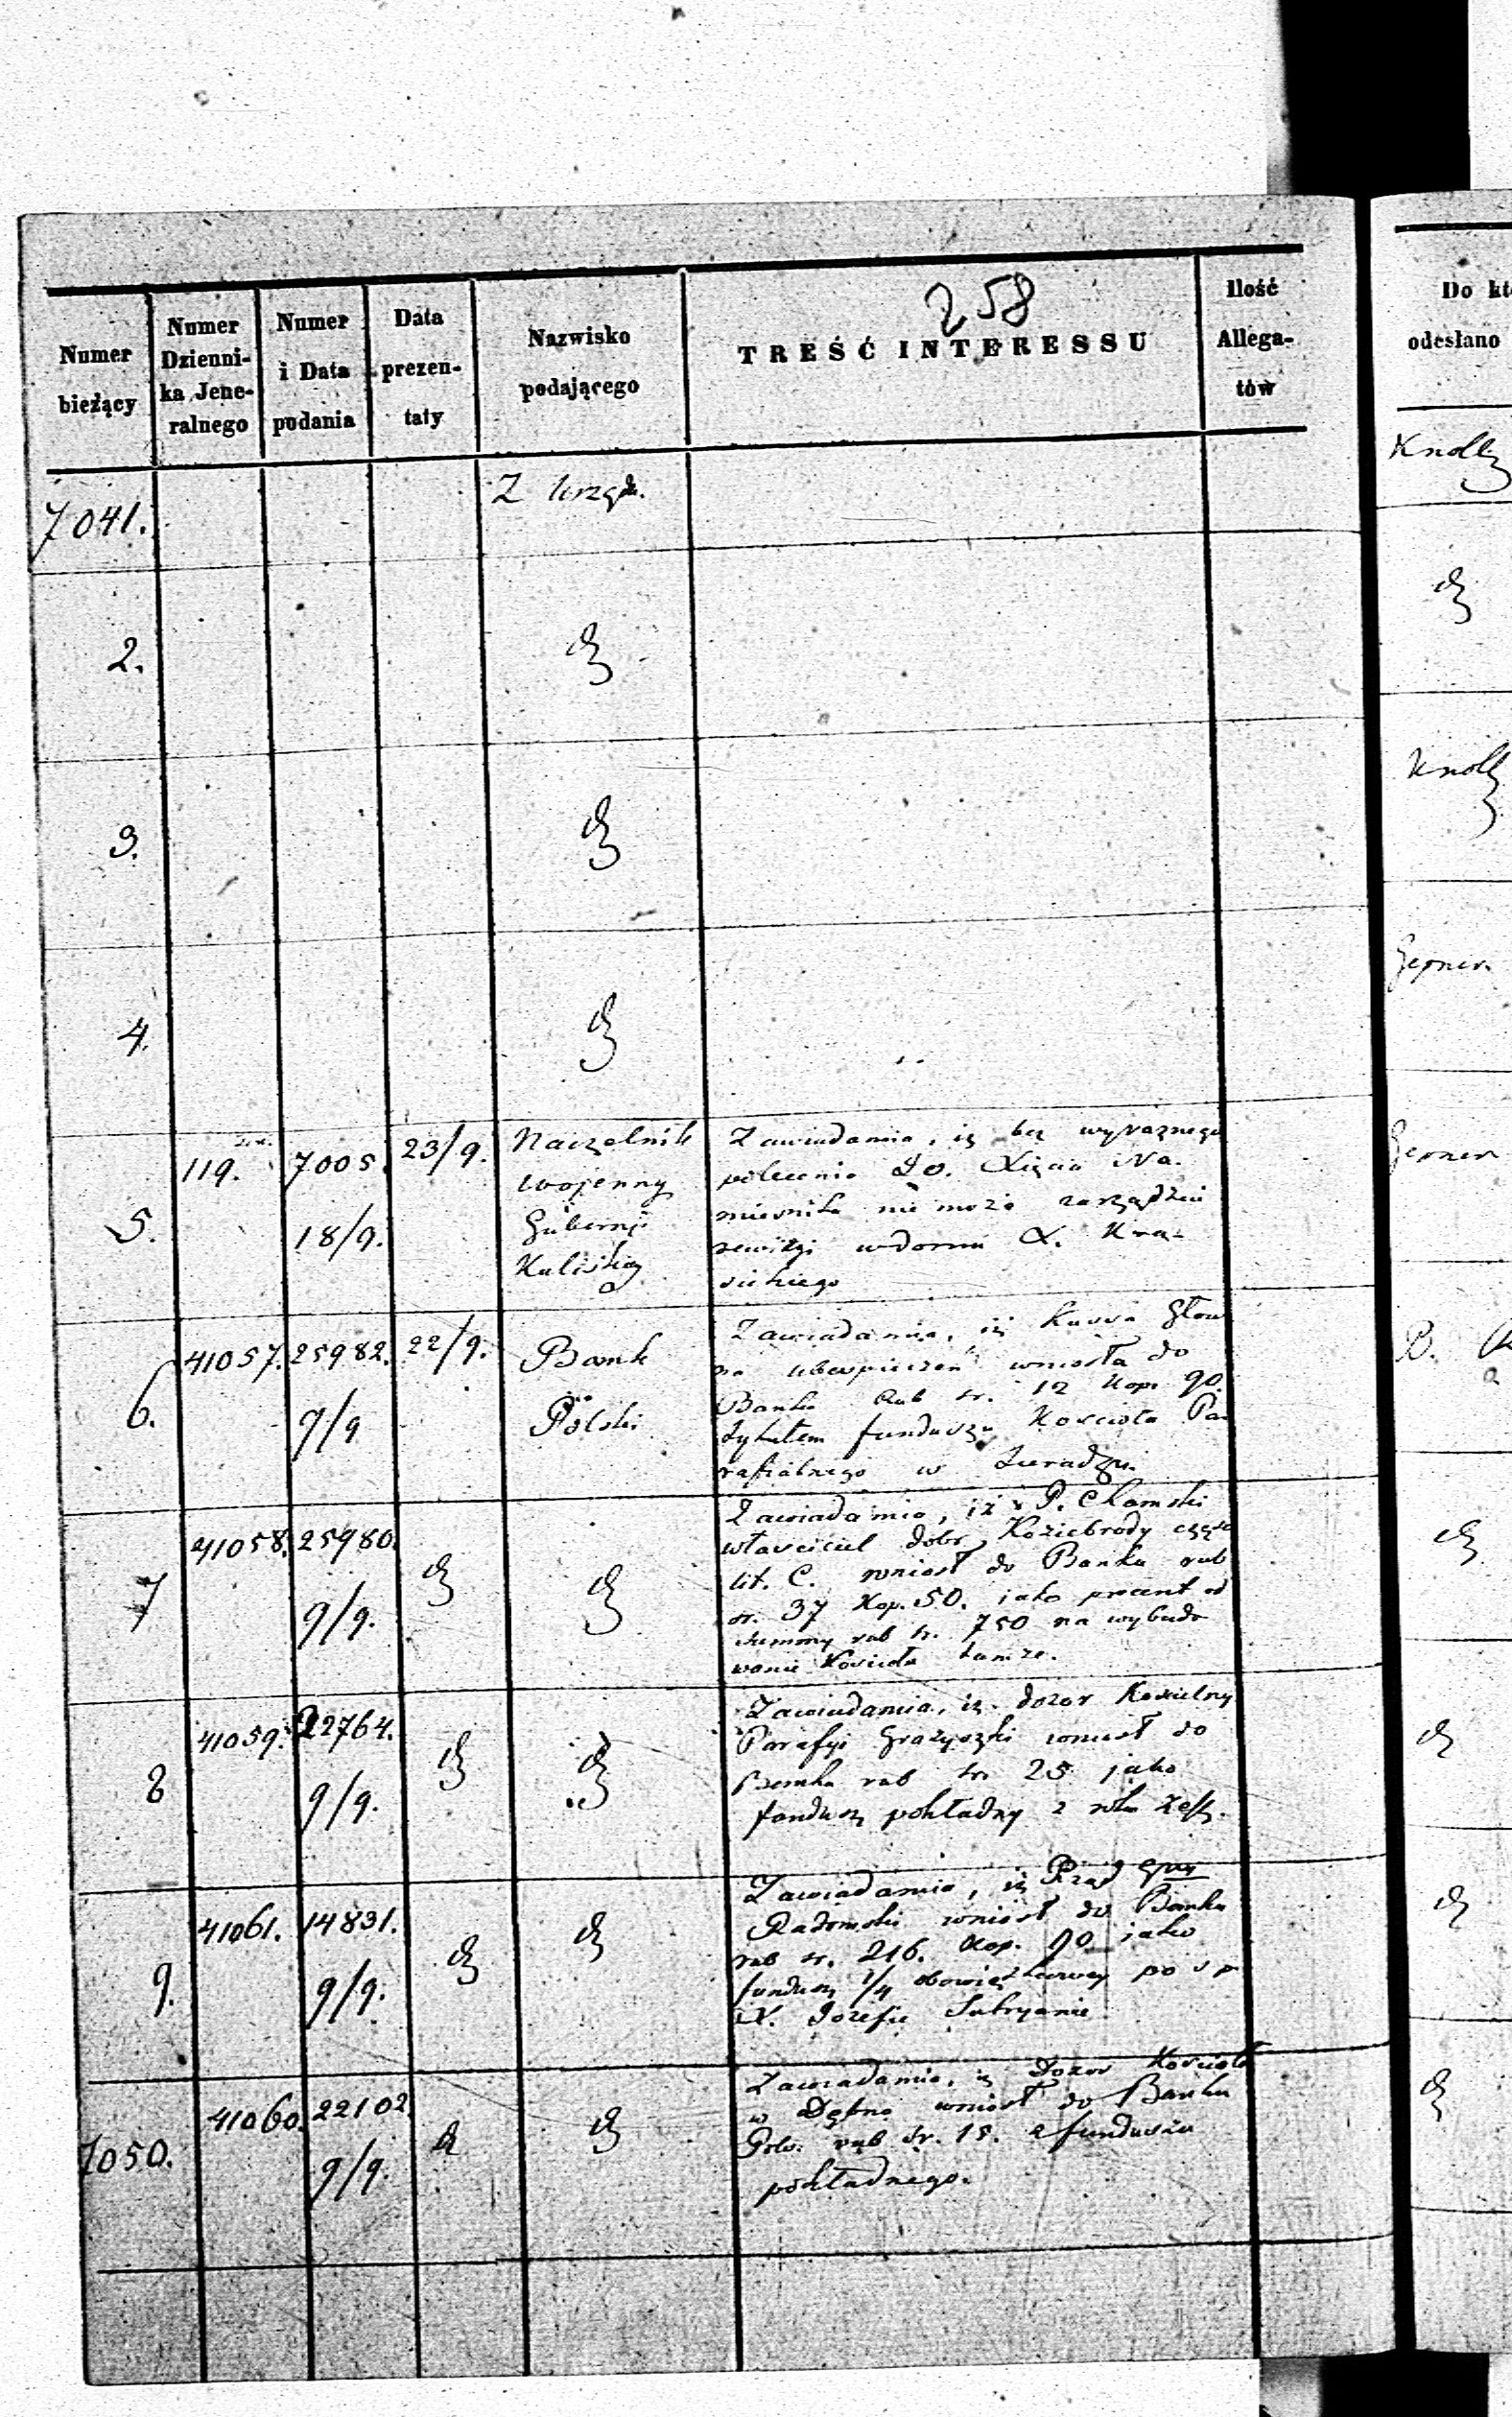 258
Numer bieżący
Numer Dzienni-
ka Jene-
ralnego
Numer i Data podania
Data prezen-
taty
Nazwisko podającego
TREŚĆ INTERESSU
Ilość Allega-
tów
Do
odesłano
7041.
Z Urzęd.
Knoll
2.
3.
Knoll
4.
5.
119.
7005.
18/9.
23/9.
Naczelnik
wojenny
Gubernji
Kaliskiej
Zawiadamia, iż bez wyraznego
polecenia JO. Xięcia Na-
miestnika nie może zarządzić
rewizji w domu X. Kra-
sickiego
6.
41057.
25982.
9/9
22/9.
Bank
Polski
Zawiadamia, iż Kassa Głów
na ubezpieczeń wniosła do
Banku Rub sr. 12 kop. 90.
tytułem funduszu Kościoła Pa-
rafialnego w Sieradzu.
B.
7
41058.
25980.
9/9.
Zawiadamia, iż P. Chamski
właściciel dobr Koziebrody część
lit. C. wniosł do Banku rub
sr. 37 Kop. 50. jako procent od
summy rub sr. 750 na wybudo
wanie Kościoła tamże.
8
41059.
22764.
9/9.
Zawiadamia, iż dozor Kościelny
Parafji wniosł do
Banku rub sr. 25 jako
fundusz pokładny z roku
9.
41061.
14831.
9/9.
Zawiadamia, iż Rząd
Radomski wniosł do Banku
rub sr. 216. Kop. 90 jako
fundusz 1/4 po
X. Józefie
7050.
41060.
22102
9/9.
Zawiadamia, iż Dozor Kościoła
w Dębno wniosł do Banku
Pols. rub sr. 18. z funduszu
pokładnego.